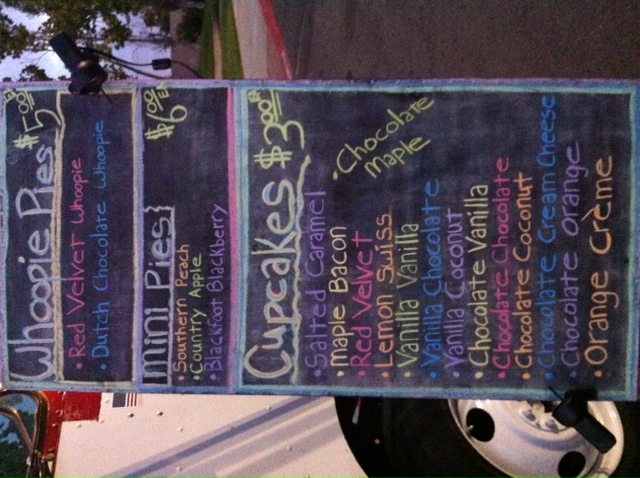 Whoopie Pies $5.00 EA
• Red Velvet Whoopie
• Dutch Chocolate Whoopie
Mini Pies} $6.00 EA
• Southern Peach
• Country Apple
• Blackfoot Blackberry
Cupcakes $3.00 EA
• Salted Caramel
• Maple Bacon
• Red Velvet
• Lemon Suiss
• Vanilla Vanilla
• Vanilla Chocolate
• Vanilla Coconut
• Chocolate Vanilla
• Chocolate Chocolate
• Chocolate Coconut
• Chocolate Cream Cheese
• Chocolate Orange
• Orange Crème
• Chocolate
Maple